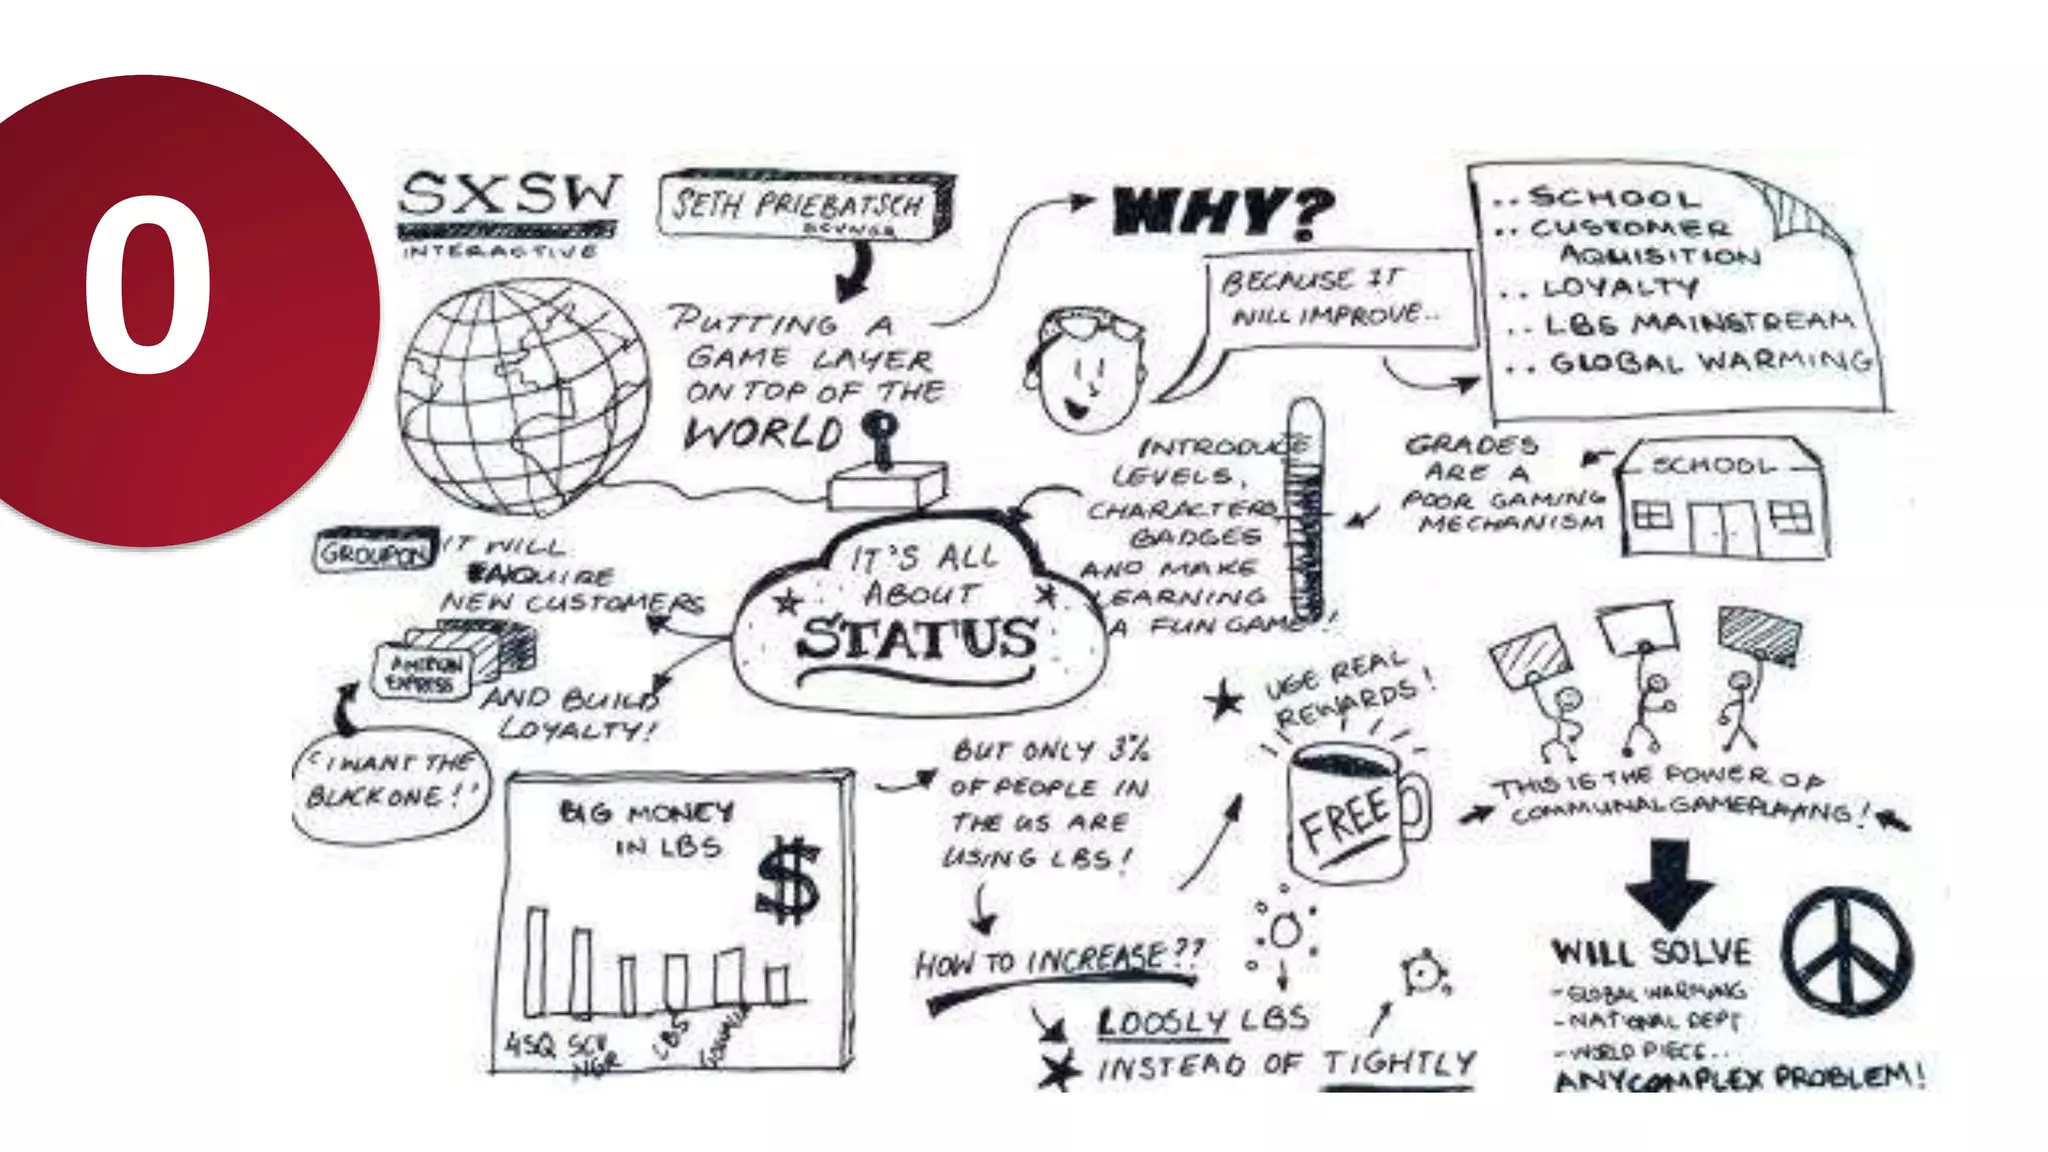 0
SXSW
INTERACTIVE
SETH PRIEBATSCH
SCVNGR
PUTTING A
GAME LAYER
ON TOP OF THE
WORLD
WHY?
BECAUSE IT
WILL IMPROVE..
.. SCHOOL
.. CUSTOMER
AQUISITION
.. LOYALTY
.. LBS MAINSTREAM
.. GLOBAL WARMING
INTRODUCE
LEVELS,
CHARACTERS
BADGES
AND MAKE
LEARNING
A FUN GAME!
GRADES
ARE A
POOR GAMING
MECHANISM
SCHOOL
IT'S ALL
ABOUT
STATUS
GROUPON
IT WILL
AQUIRE
NEW CUSTOMERS
AMERICAN
EXPRESS
AND BUILD
LOYALTY!
"I WANT THE
BLACK ONE!"
BIG MONEY
IN LBS
$
4SQ
SCV
NGR
LBS
BUT ONLY 3%
OF PEOPLE IN
THE US ARE
USING LBS!
HOW TO INCREASE??
LOOSLY LBS
INSTEAD OF TIGHTLY
USE REAL
REWARDS!
FREE
THIS IS THE POWER OF
COMMUNAL GAMEPLAYING!
WILL SOLVE
- GLOBAL WARMING
- NATIONAL DEPT
- WORLD PIECE..
ANY COMPLEX PROBLEM!